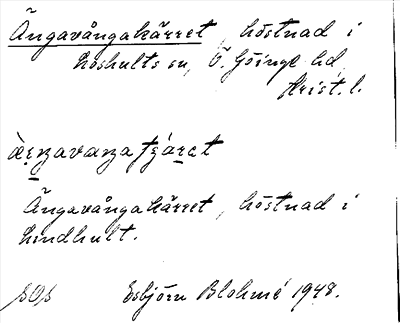 Ängavångakärret, höstnad i
Loshults sn, Ö. Göinge hd
Krist. l.
Ängavångakärret, höstnad i
Lindhult.
SOS Esbjörn Blohmé 1948.